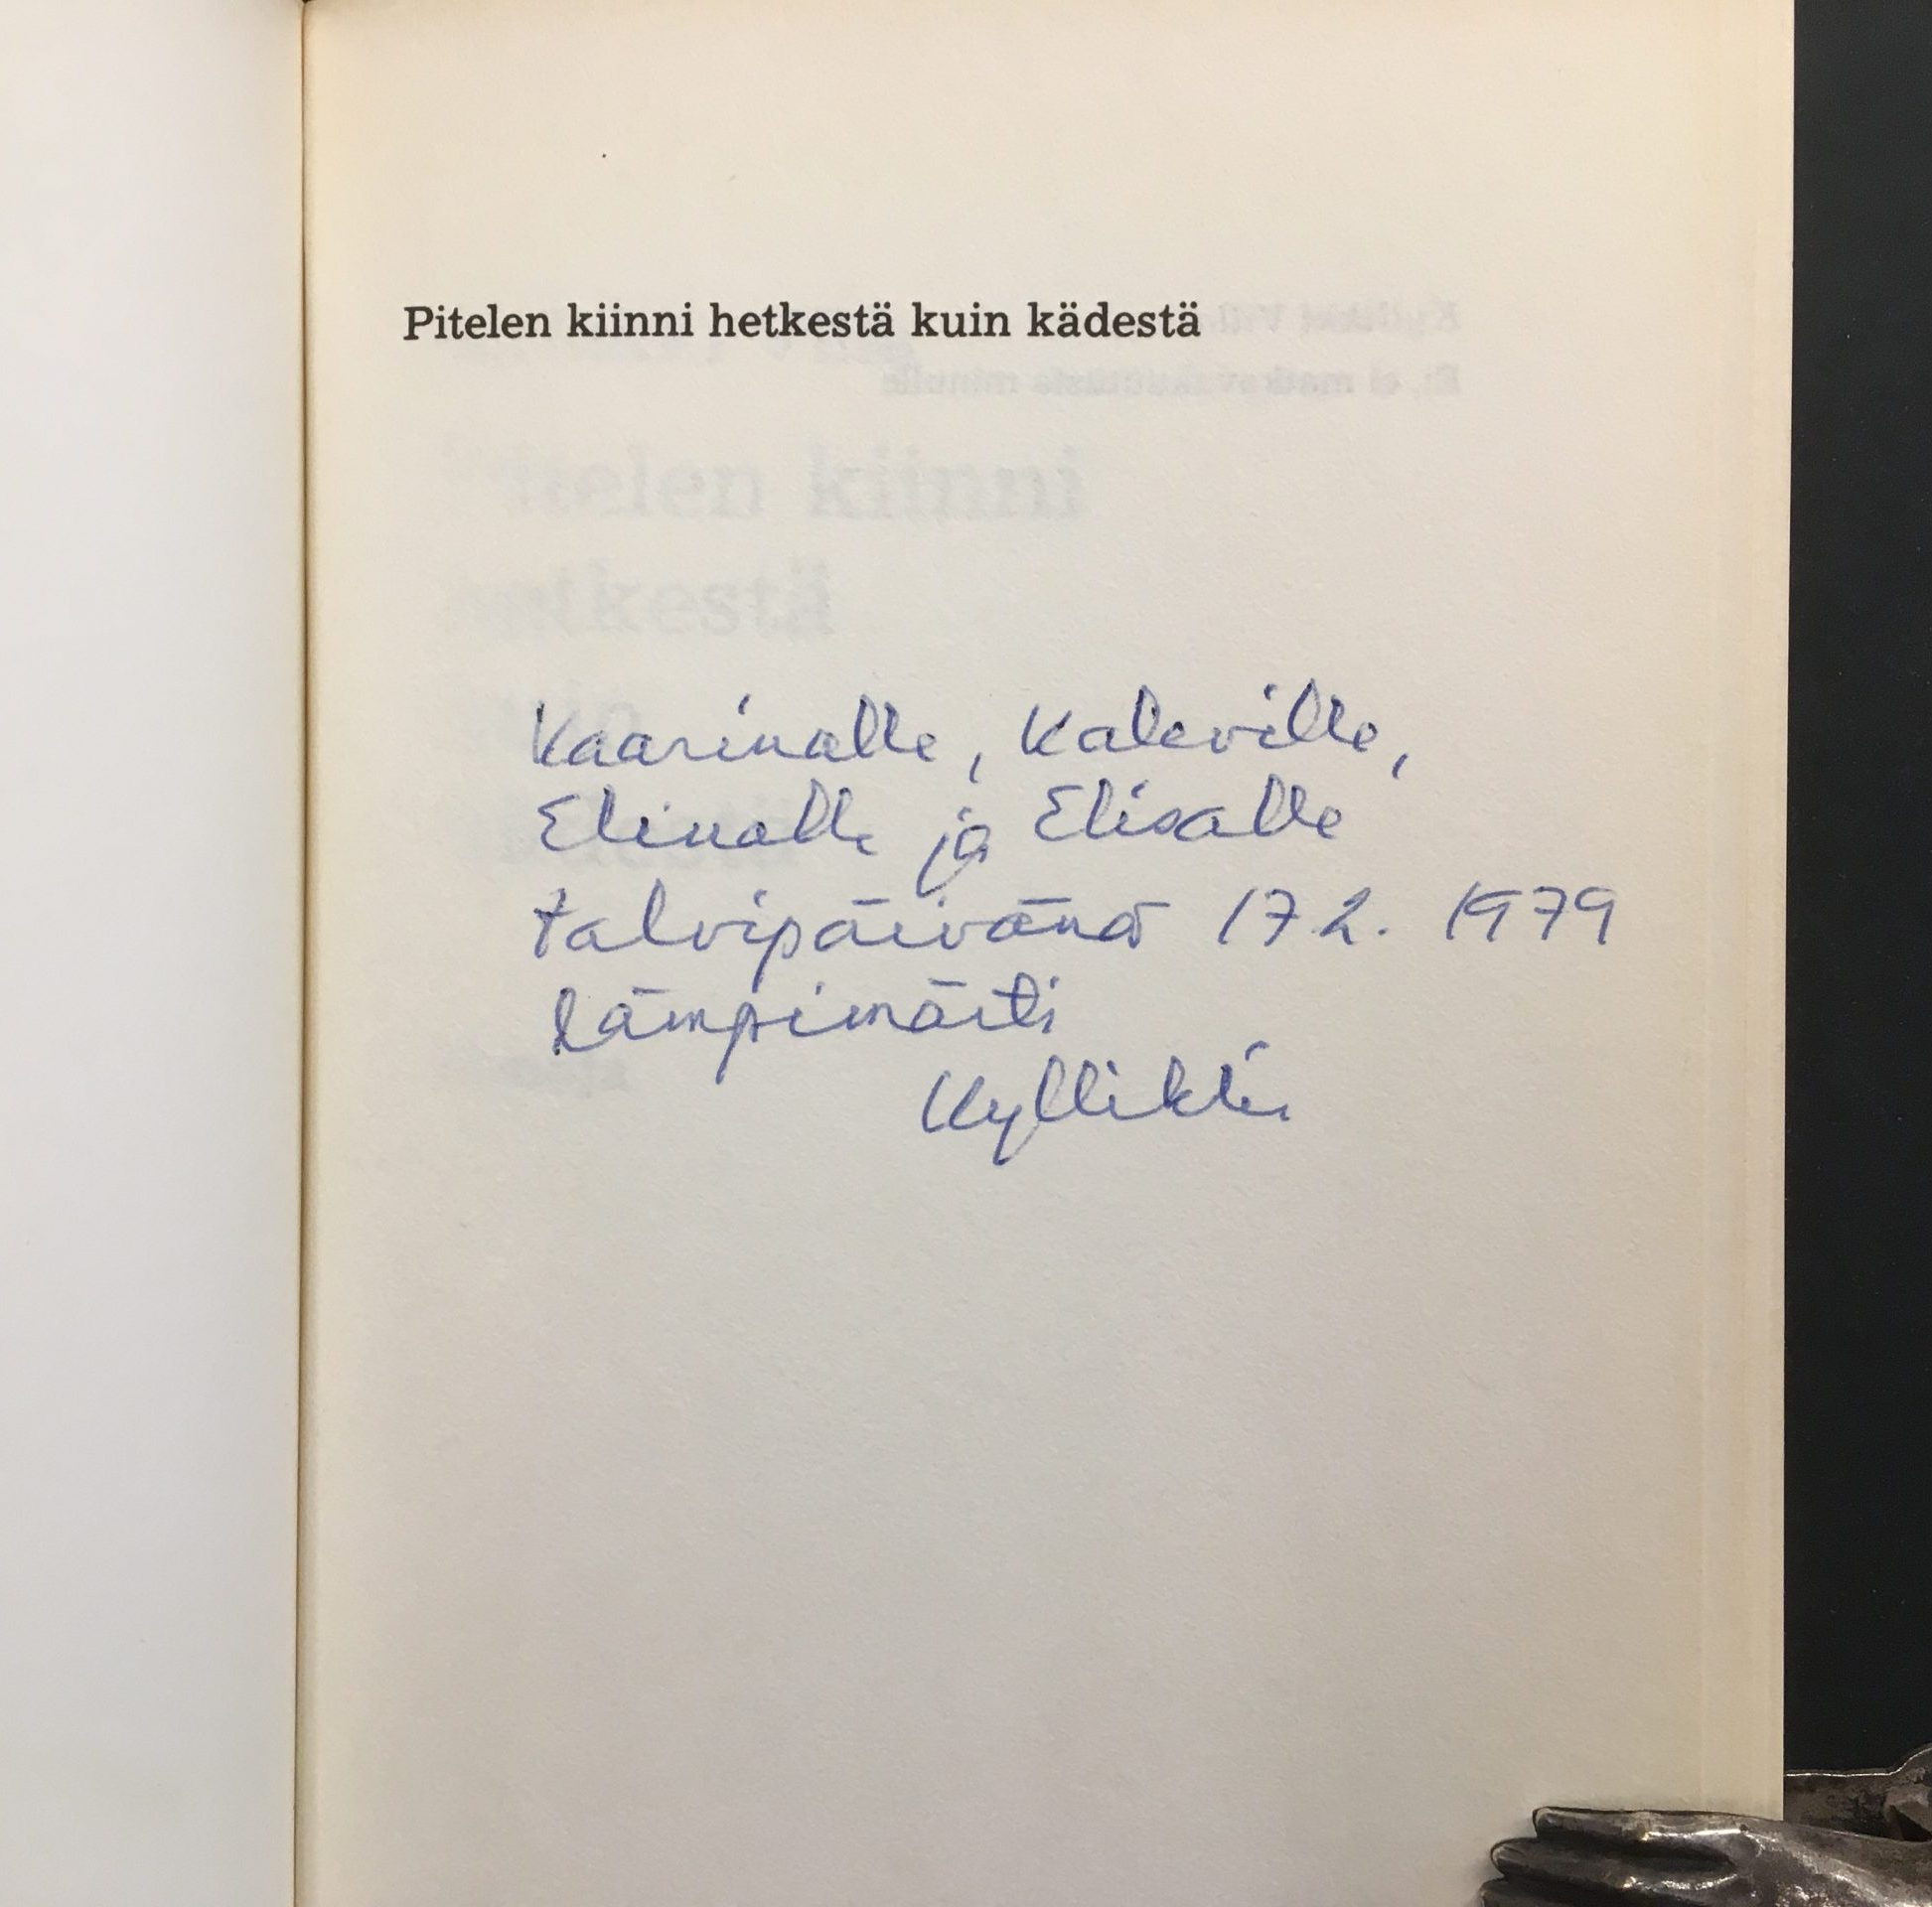 Pitelen kiinni hetkestä kuin kädestä
Kaarinalle, Kaleville,
Elinalle ja Elisalle
talvipäivänä 17.2. 1979
lämpimästi
Kyllikki